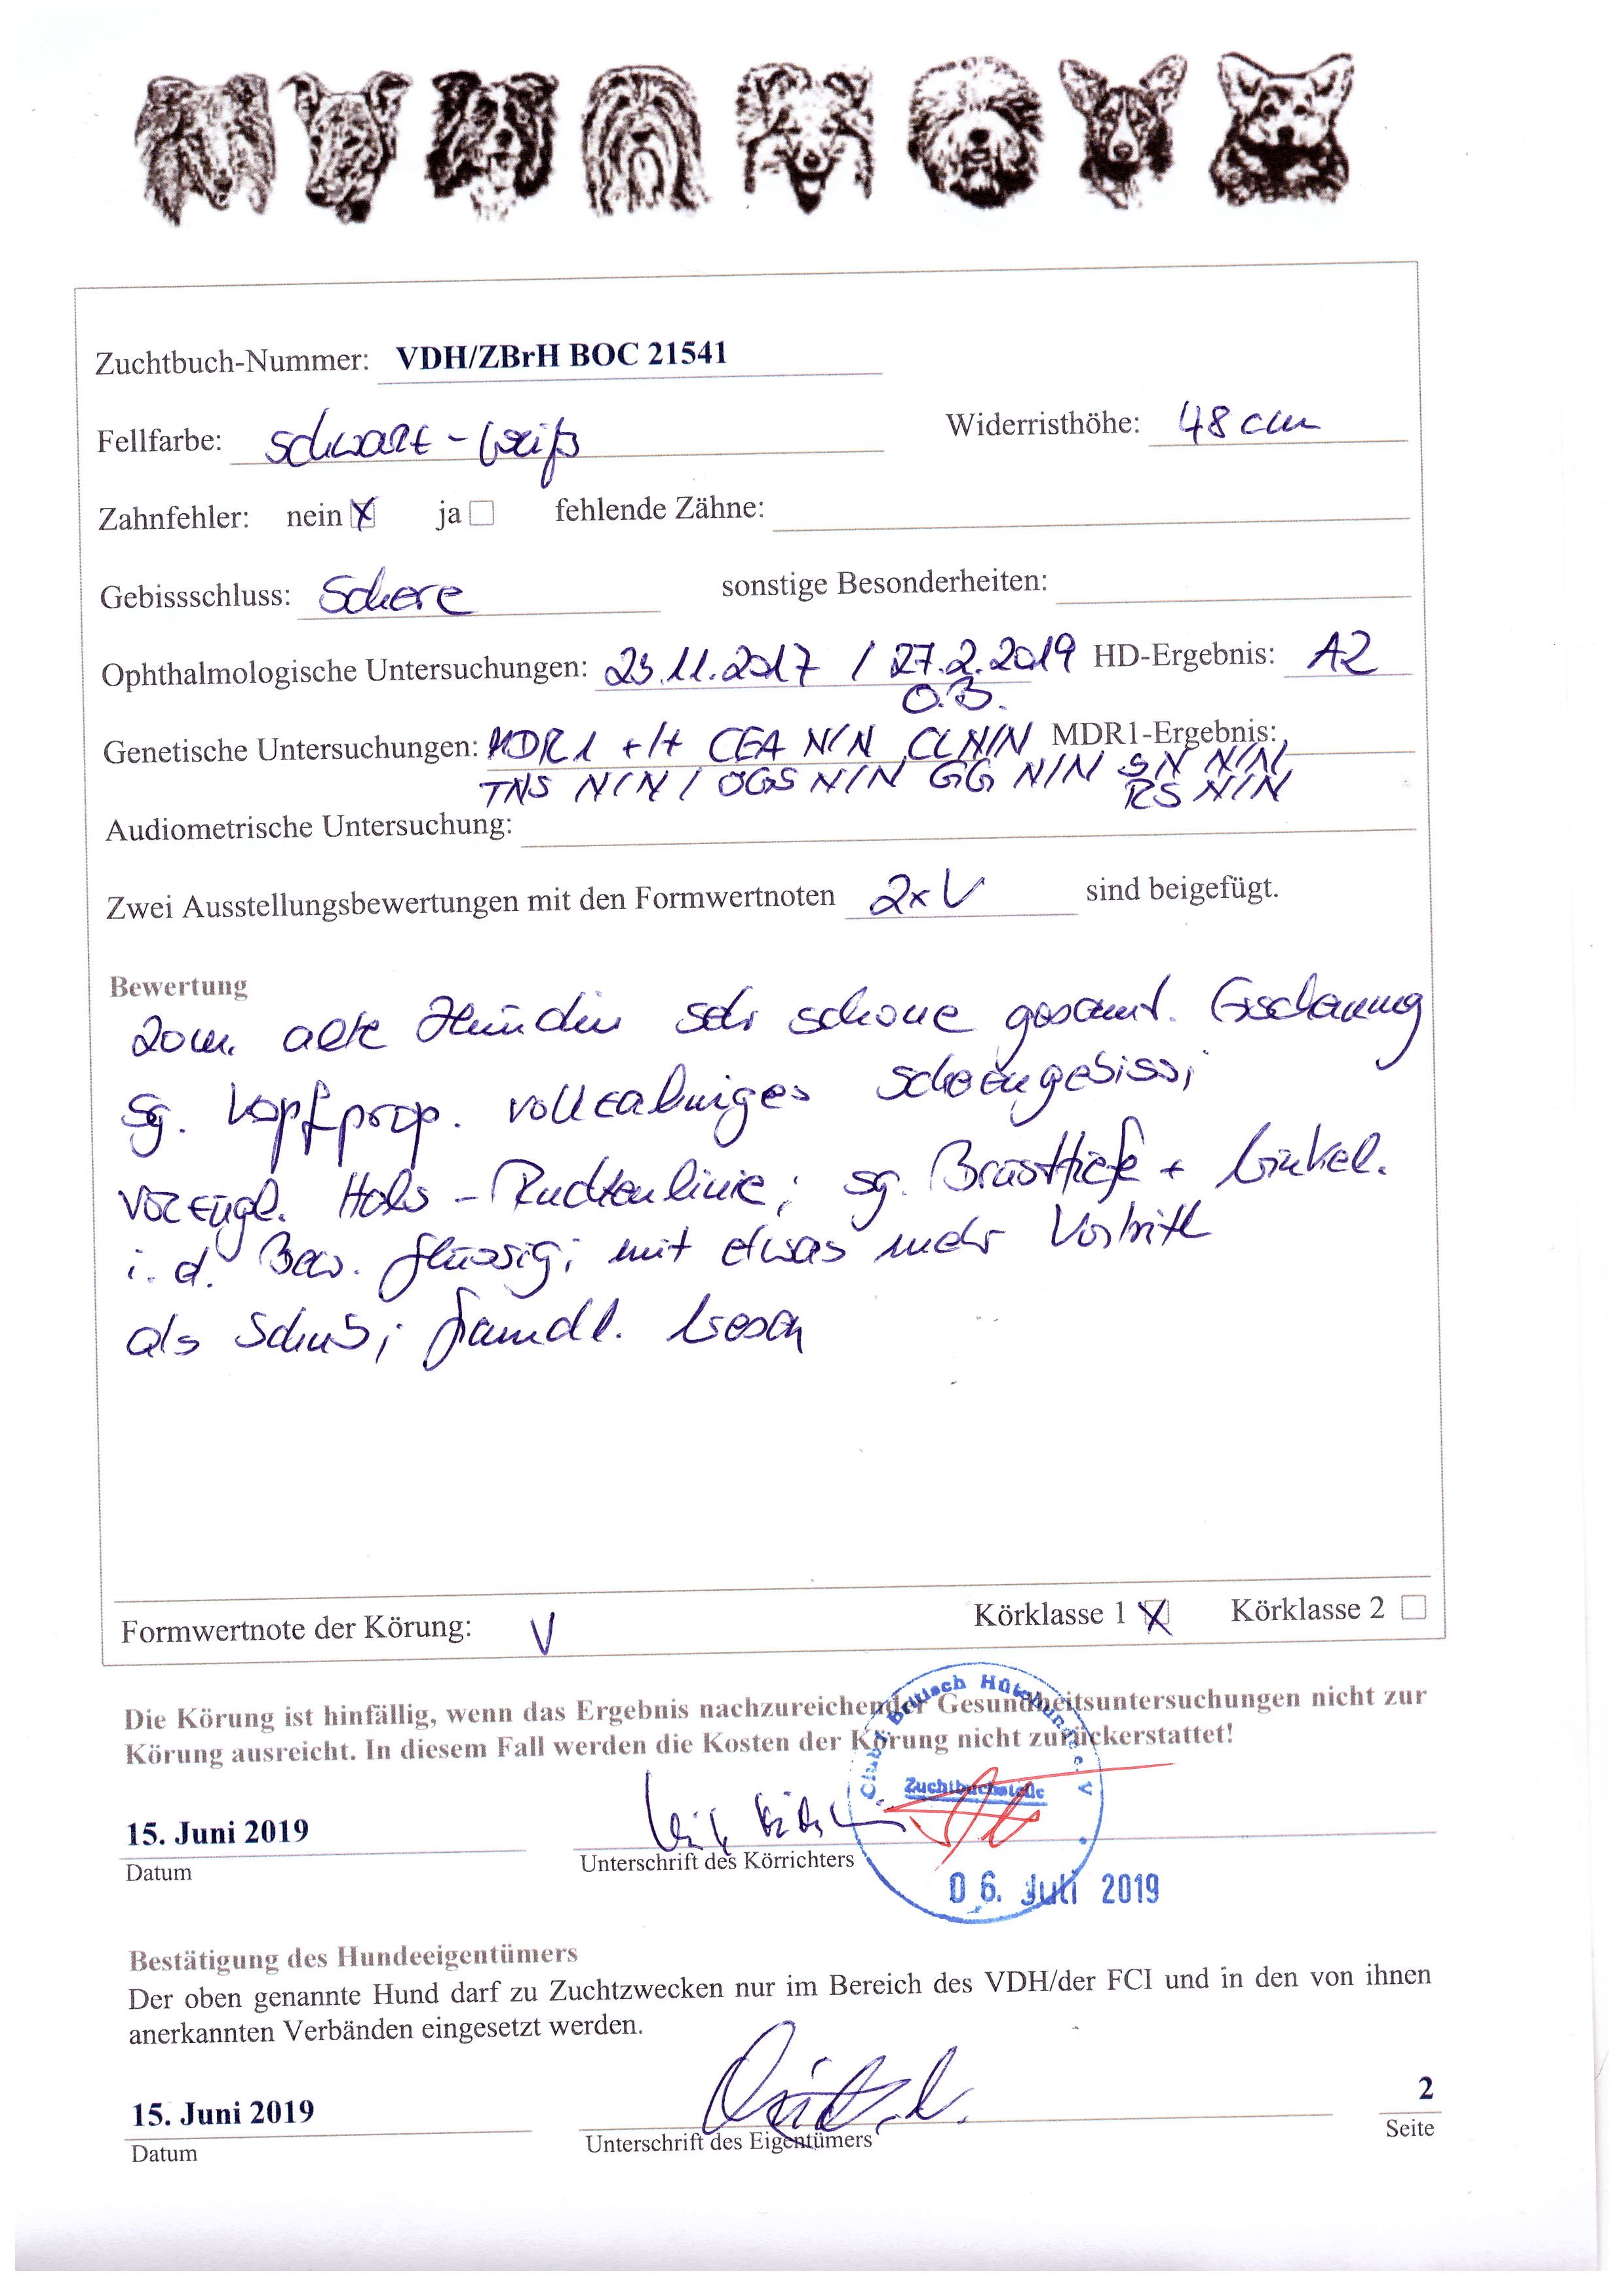 Zuchtbuch-Nummer: VDH/ZBrH BOC 21541
Fellfarbe: schwarz-weiß Widerristhöhe: 48 cm
Zahnfehler: nein X ja fehlende Zähne:
Gebissschluss: Schere sonstige Besonderheiten:
Ophthalmologische Untersuchungen: 23.11.2017 / 27.2.2019 HD-Ergebnis: A2
O.B.
Genetische Untersuchungen: MDR1 +/+ CEA N/N CL N/N MDR1-Ergebnis:
TNS N/N / OGS N/N GG N/N SN N/N
RS N/N
Audiometrische Untersuchung:
Zwei Ausstellungsbewertungen mit den Formwertnoten 2xV sind beigefügt.
Bewertung
20 m. alte Hündin sehr schöne gesamt. Erscheinung
sg. Kopfprop. vollzahniges Scherengebiss;
vorzügl. Hals - Rückenlinie; sg. Brusttiefe + Winkel.
i. d. Bew. flüssig; mit etwas mehr Vortritt
als Schub; freundl. Wesen
Formwertnote der Körung: V Körklasse 1 X Körklasse 2
Die Körung ist hinfällig, wenn das Ergebnis nachzureichender Gesundheitsuntersuchungen nicht zur
Körung ausreicht. In diesem Fall werden die Kosten der Körung nicht zurückerstattet!
Club f. Britisch Hütehunde e.V
Zuchtbuchstelle
15. Juni 2019
Datum Unterschrift des Körrichters
06. Juli 2019
Bestätigung des Hundeeigentümers
Der oben genannte Hund darf zu Zuchtzwecken nur im Bereich des VDH/der FCI und in den von ihnen
anerkannten Verbänden eingesetzt werden.
15. Juni 2019 2
Datum Unterschrift des Eigentümers Seite